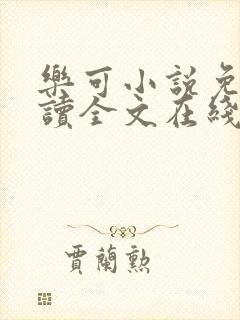 樂可小説免
讀全文在綫
賈蘭勲